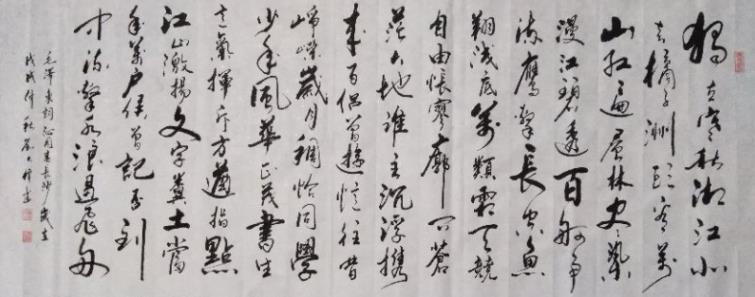 獨立寒秋湘江北
去橘子洲頭看萬
山紅遍層林盡染
漫江碧透百舸爭
流鷹擊長空魚
翔淺底萬類霜天競
自由悵寥廓問蒼
茫大地誰主沉浮携
來百侣曾游憶往昔
崢嶸歲月稠恰同學
少年風華正茂書生
意氣揮斥方遒指點
江山激揚文字糞土當
年萬户侯曾記否到
中流擊水浪遏飛舟
毛澤東詞沁園春長沙歲在
戊戌仲秋